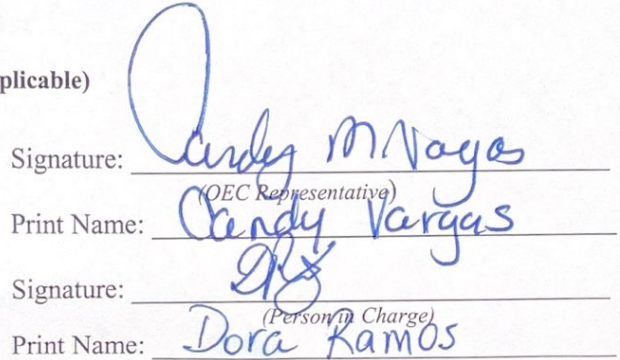 plicable)
Signature: Candy M Vargas
(OEC Representative)
Print Name: Candy Vargas
Signature:
(Person in Charge)
Print Name: Dora Ramos